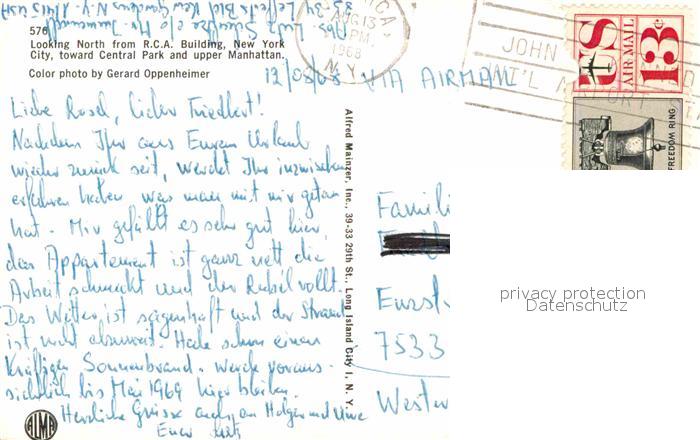 Abs. Lutz c/o Mr.
83-34 Lefferts Blvd. Kew Gardens N.Y. 11415 USA
576
Looking North from R.C.A. Building, New York
City, toward Central Park and upper Manhattan.
Color photo by Gerard Oppenheimer
12/08/68 VIA AIRMAIL
Liebe Rosel, lieber Friedbert!
Nachdem Ihr aus Eurem Urlaub
wieder zurück seit, werdet Ihr inzwischen
erfahren haben was man mit mir getan
hat. Mir gefällt es sehr gut hier,
das Appartement ist ganz nett die
Arbeit schmeckt und der Rubel rollt.
Das Wetter ist sagenhaft und der Strand
ist nicht abseits. Habe schon einen
kräftigen Sonnenbrand. Werde voraus-
sichtlich bis Mai 1969 hier bleiben.
Herzliche Grüsse auch an Holger und Uwe
Euer Lutz
ALMA
Alfred Mainzer, Inc., 39-33 29th St., Long Island City 1, N. Y.
AUG 13
PM
1968
N.Y.
JOHN
INT'L AIRPORT
US
AIR MAIL
13c
FREEDOM RING
Famili
Enzst
7533
Wester
privacy protection
Datenschutz